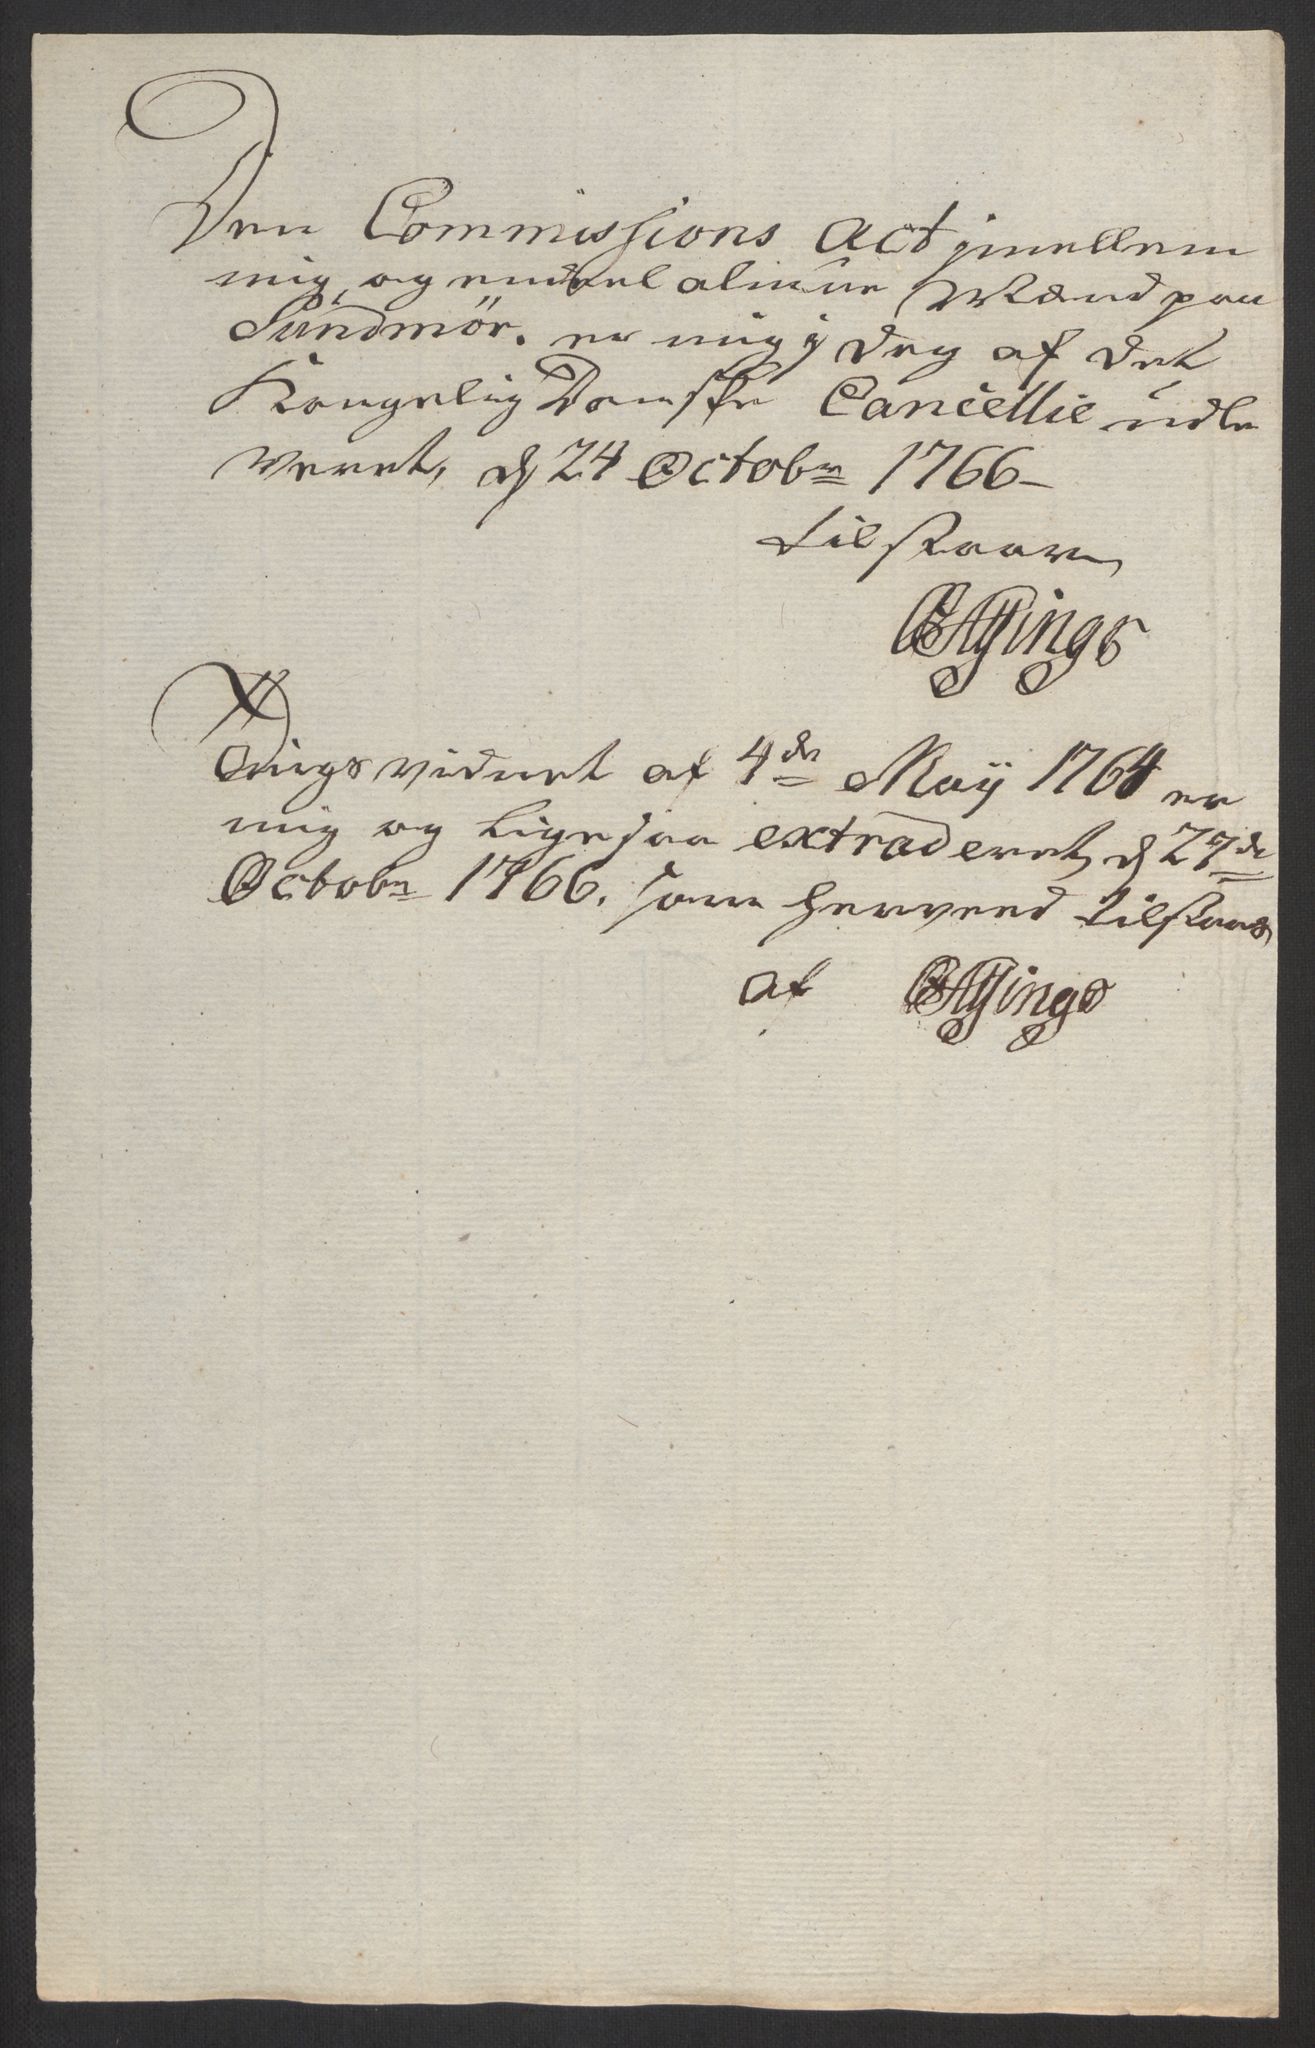 Den Commissions Act imellem
mig, og endeel almue Mænd paa
Sundmör. er mig i dag af det
Kongelig Danske Cancellie udle
veret, d 24 Octobr 1766-
tilstaaer
Tings vidnet af 4de Maÿ 1764 er
mig og ligesaa extraderet, d 27de
Octobr 1766. som herved tilstaaes
af